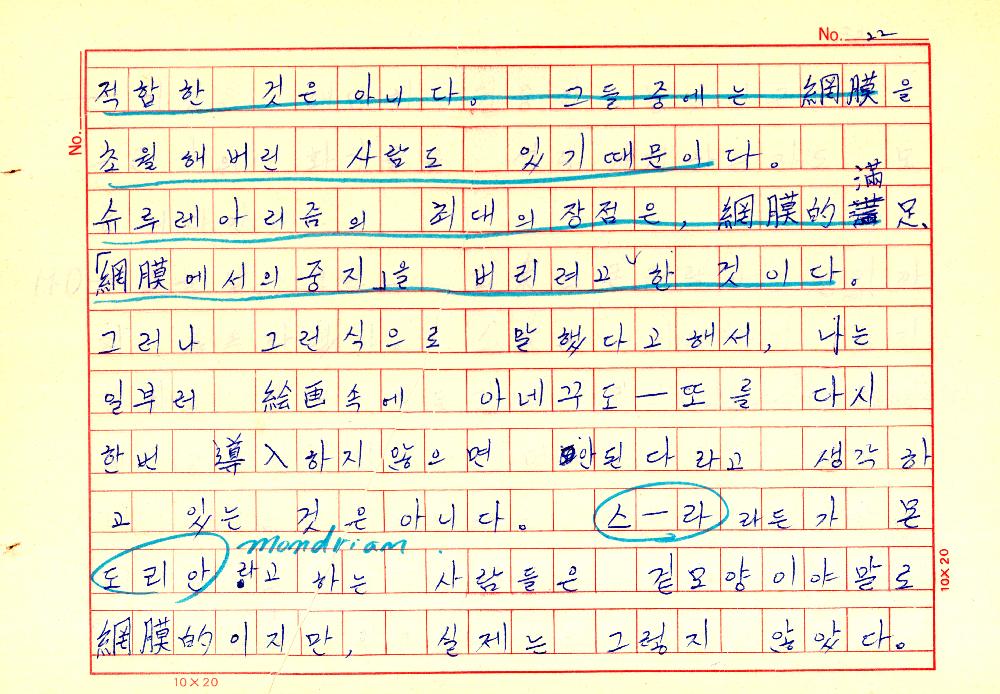 No. 22
No.
적합한 것은 아니다. 그들 중에는 網膜을
초월해버린 사람도 있기때문이다.
滿
슈루레아리즘의 최대의장점은, 網膜的 足、
「網膜에서의중지」을 버리려고 한 것이다.
그러나 그런식으로 말했다고해서, 나는
일부러 絵画속에 아네꾸도ー또를 다시
한번 導入하지않으면 안된다라고 생각하
고 있는 것은아니다. 스ー라 라든가 몬
mondrian.
도리안 라고 하는 사람들은 겉모양이야말로
網膜的이지만, 실제는 그렇지 않았다.
10×20
10×20